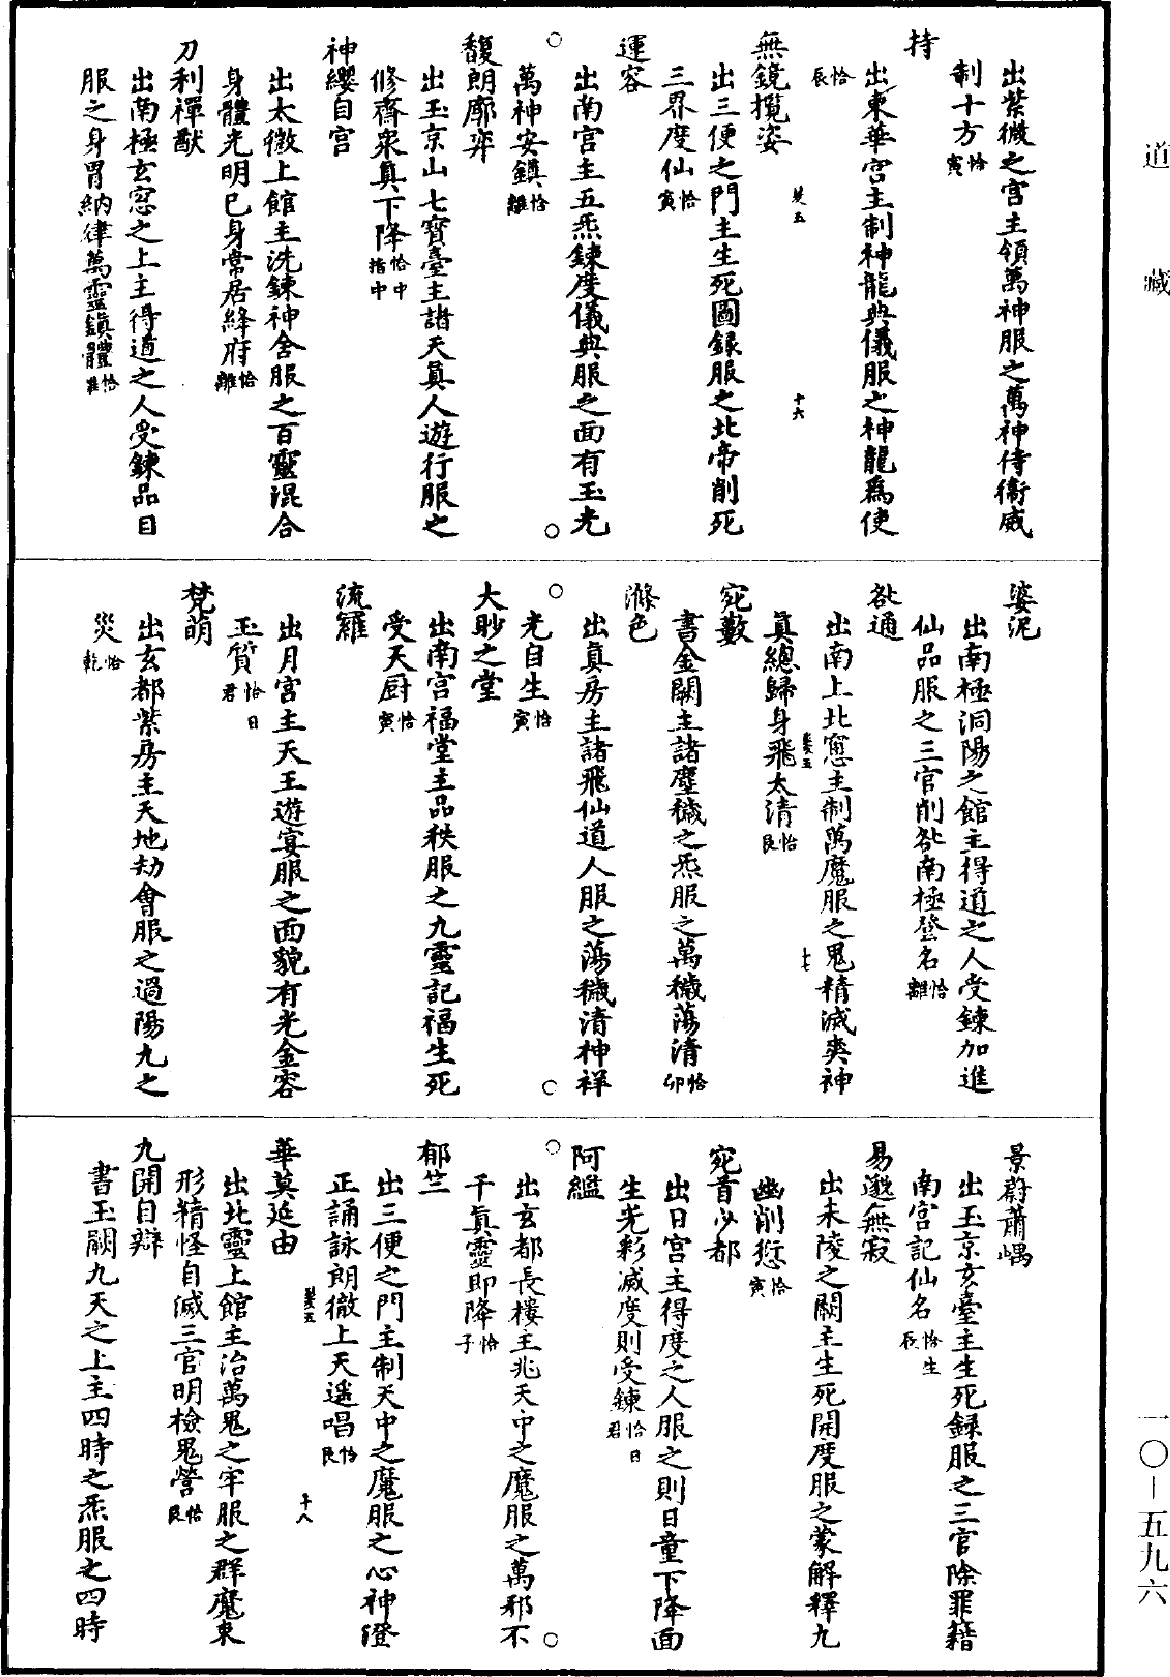 道藏
出紫微之宫主領萬神服之萬神侍衛威
制十方恰寅
持
出東華宫主制神龍典儀服之神龍爲使
恰辰
無鏡攬姿
出三便之門主生死圖録服之北帝削死
三界度仙恰寅
運容
出南宫主五炁鍊度儀典服之面有玉光
萬神安鎮恰離
馥朗廓弈
出玉京山七寳臺主諸天真人遊行服之
修齋衆真下降恰中指中
神纓自宫
出太微上館主洗鍊神舍服之百靈混合
身體光明巳身常居絳府恰離
刀利禪猷
出南極玄窓之上主得道之人受鍊品目
服之身胃納律萬靈鎮體恰離
婆泥
出南極洞陽之館主得道之人受鍊加進
仙品服之三官削咎南極登名恰離
咎通
出南上北窻主制萬魔服之鬼精滅爽神
真總歸身飛太清恰艮
宛藪
書金闕主諸塵穢之炁服之萬穢蕩清恰卯
滌色
出真房主諸飛仙道人服之蕩穢清神祥
光自生恰寅
大眇之堂
出南宫福堂主品秩服之九靈記福生死
受天厨恰寅
流羅
出月宫主天王遊宴服之面貌有光金容
玉質恰日君
梵萌
出玄都紫房主天地劫會服之過陽九之
災恰乾
景蔚蕭嵎
出玉京玄臺主生死録服之三官除罪籍
南宫記仙名恰生辰
易邈無寂
出朱陵之闕主生死開度服之蒙解釋九
幽削愆恰寅
宛首少都
出日宫主得度之人服之則日童下降面
生光彩滅度則受鍊恰日君
阿縕
出玄都長樓主兆天中之魔服之萬邪不
干真靈即降恰子
郁竺
出三便之門主制天中之魔服之心神澄
正誦詠朗徹上天遥唱恰艮
華莫延由
出北靈上館主治萬鬼之牢服之群魔束
形精怪自滅三官明檢鬼營恰艮
九開自辯
書玉闕九天之上主四時之炁服之四時
一〇—五九六